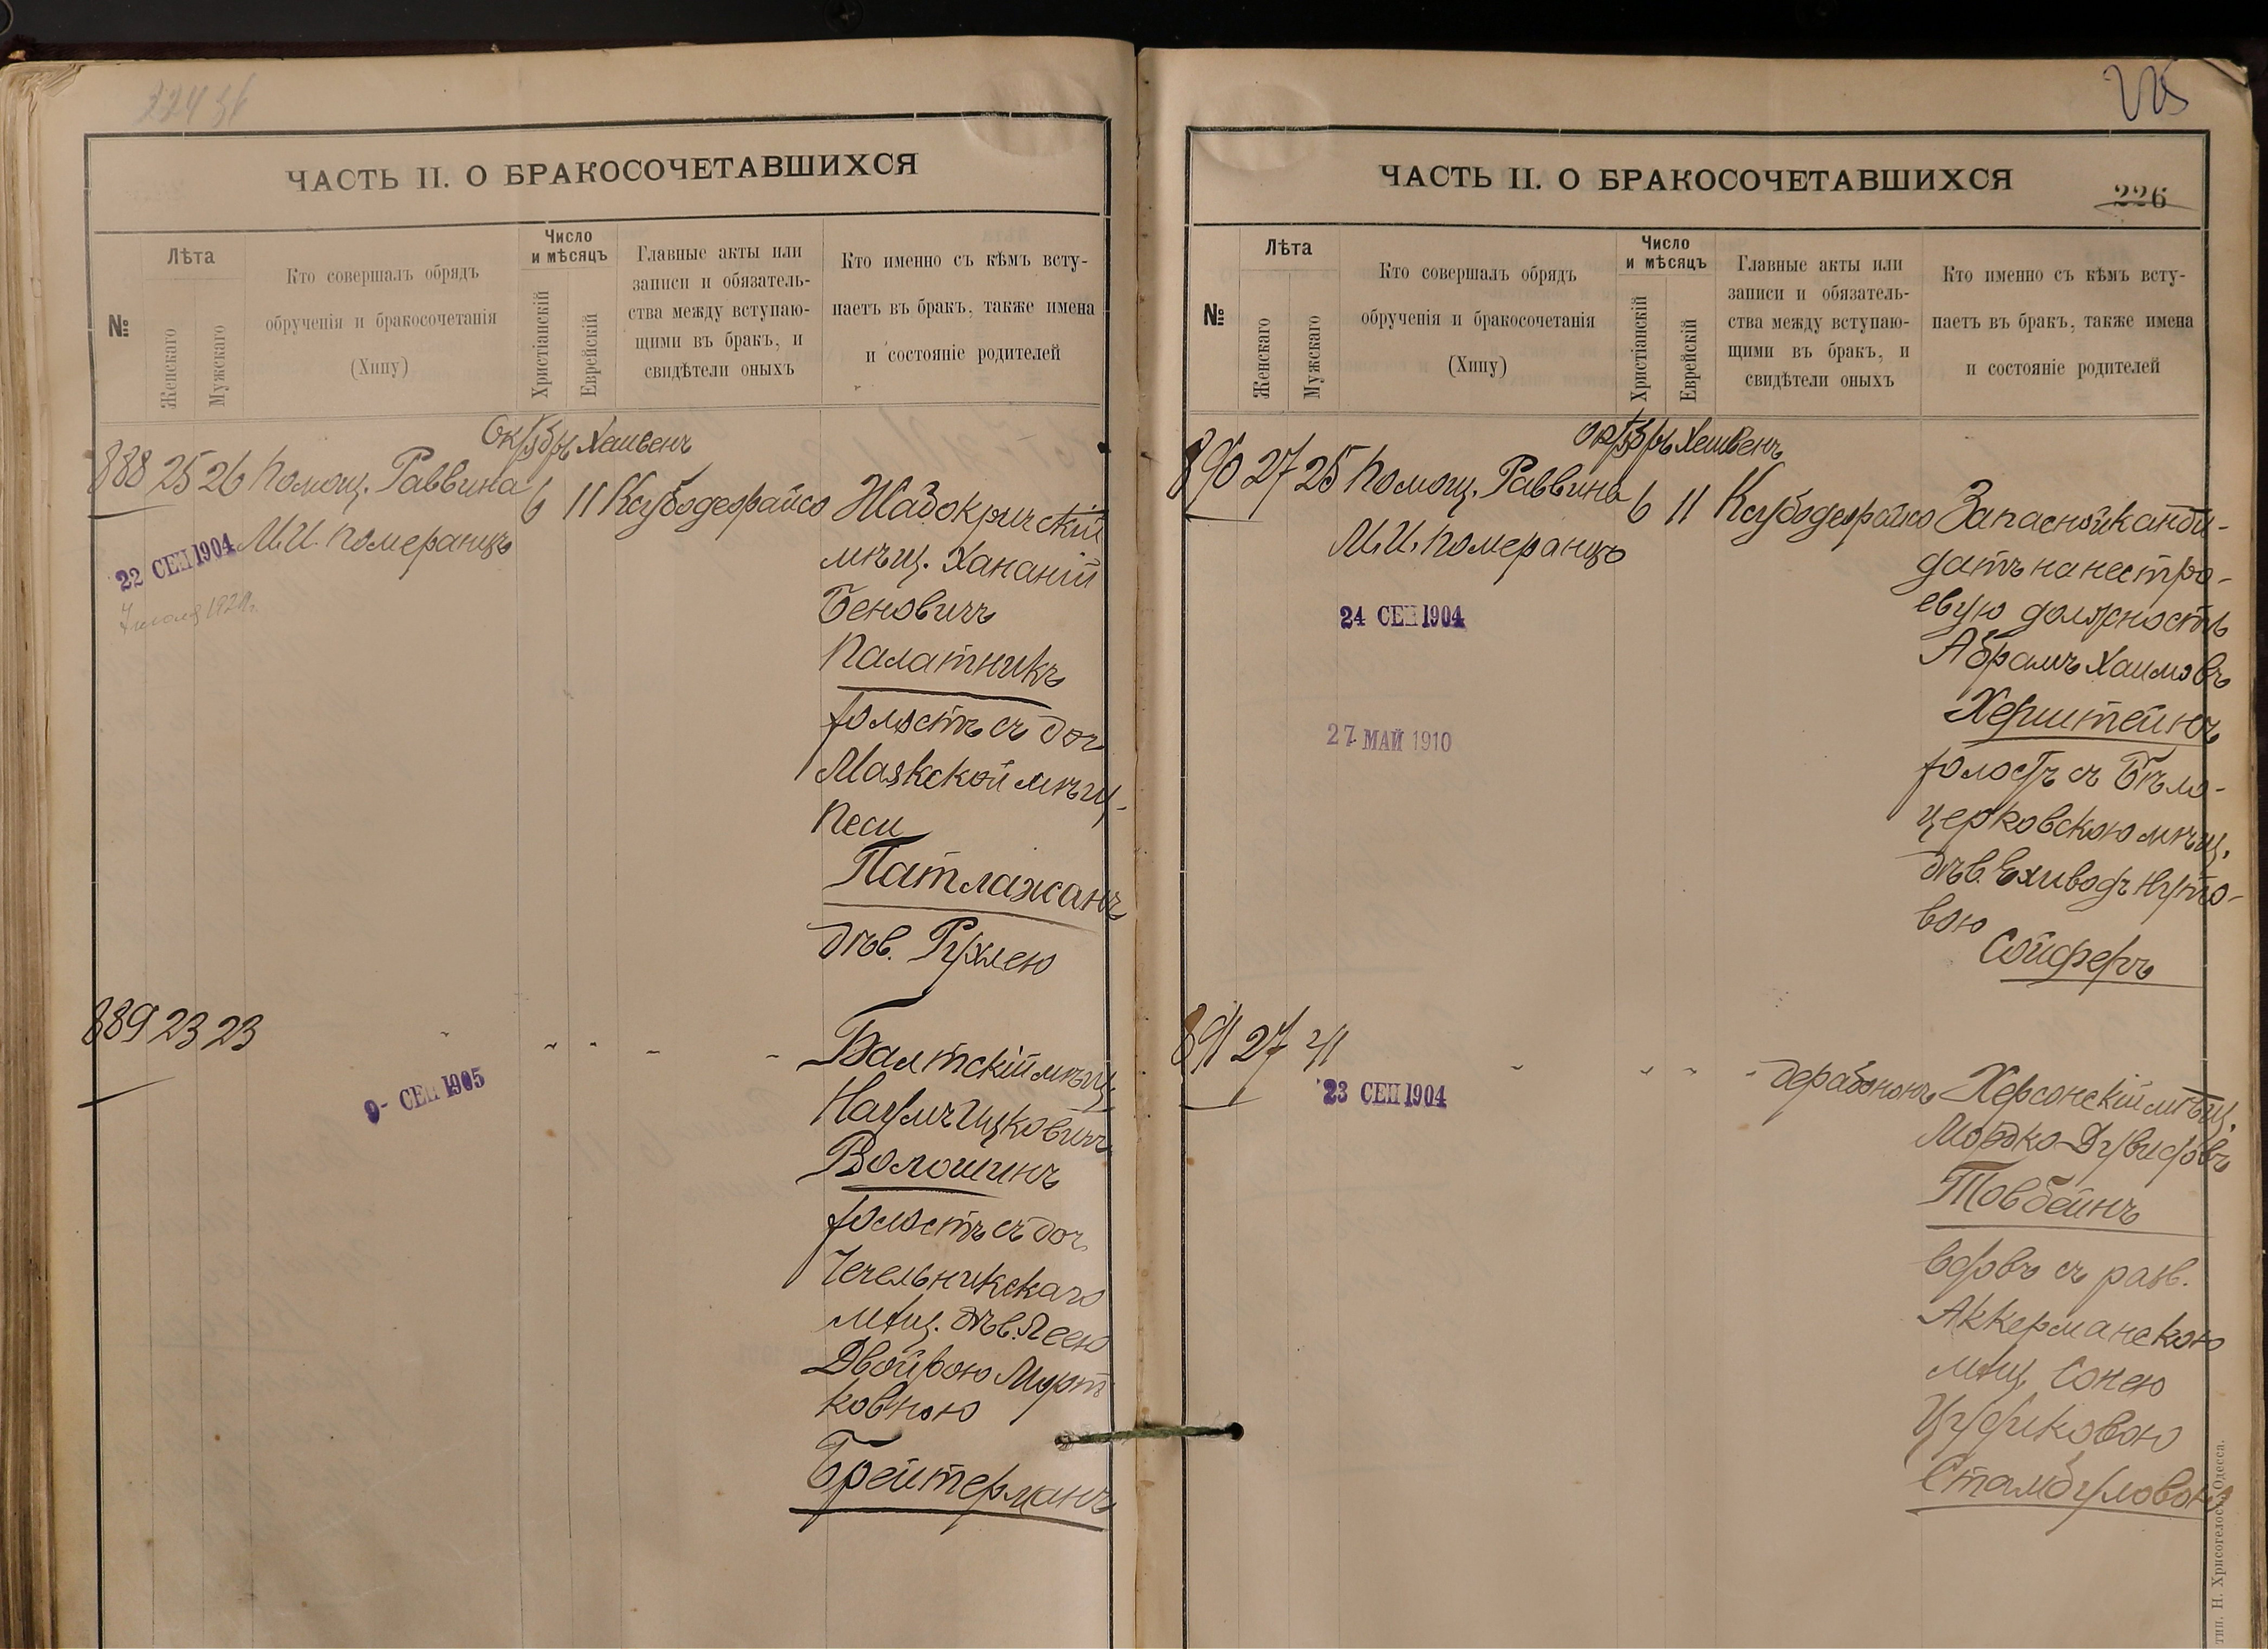 224
ЧАСТЬ II. О БРАКОСОЧЕТАВШИХСЯ
№
Лѣта
Женскаго
Мужскаго
Кто совершалъ обрядъ
обрученія и бракосочетанія
(Хипу)
Число
и мѣсяцъ
Христіанскій
Еврейскій
Главные акты или
записи и обязатель-
ства между вступаю-
щими въ бракъ, и
свидѣтели оныхъ
Кто именно съ кѣмъ всту-
паетъ въ бракъ, также имена
и состояніе родителей
Октябрь Хешвенъ
888 25 26 Помощ. Раввина 6 11 Ксубодеорайсо
М.И. Померанцъ
22 СЕП 1904
1920г.
мѣщ. Хананій
Беновичъ
Палатникъ
холостъ съ доч
Маякской мѣщ.
Песи
Патлажанъ
дѣв. Рухлею
889 23 23
9- СЕП 1905
Балтскій мѣщ.
Наумъ Ицковичъ
Волошинъ
холостъ съ доч.
Чечельникскаго
мѣщ. дѣв.
Двойрою Морт
ковною
Брейтерманъ
225
ЧАСТЬ II. О БРАКОСОЧЕТАВШИХСЯ
226
№
Лѣта
Женскаго
Мужскаго
Кто совершалъ обрядъ
обрученія и бракосочетанія
(Хипу)
Число
и мѣсяцъ
Христіанскій
Еврейскій
Главные акты или
записи и обязатель-
ства между вступаю-
щими въ бракъ, и
свидѣтели оныхъ
Кто именно съ кѣмъ всту-
паетъ въ бракъ, также имена
и состояніе родителей
Октябрь Хешвенъ
890 27 25 Помощ. Раввина 6 11 Ксубодеорайсо
М.И. Померанцъ
24 СЕП 1904
27 МАЙ 1910
Запасной канди-
датъ на нестро-
евую должность
Абрамъ Хаимовъ
Херштейнъ
холостъ съ Бѣло-
церковскою мѣщ.
дѣв. Нуто-
вою
Сойферъ
891 27 41
23 СЕП 1904
дерабононъ
Херсонскій мѣщ.
Мордко-Дувидовъ
Товбейнъ
вдовъ съ разв.
Аккерманскою
мѣщ. Сонею
Цудиковою
Стамбуловою
тип. Н. Хрисогелосъ, Одесса.